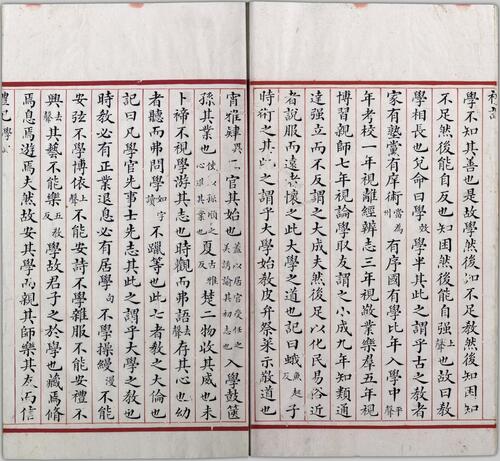 學不知其善也是故學然後知不足教然後知困知
不足然後能自反也知困然後能自强上聲也故曰教
學相長也兌命曰學半其此之謂乎古之教者
家有塾黨有庠術當為州有序國有學比年入學中平聲
年考校一年視離經辨志三年視敬業樂羣五年視
博習親師七年視論學取友謂之小成九年知類通
達强立而不反謂之大成夫然後足以化民易俗近
者說服而遠者懷之此大學之道也記曰蛾魚起反子
時術之其此之謂乎大學始教皮弁祭菜示敬道也
宵雅肄二官其始也蓋以居官受任之美誘諭其初志也入學鼓篋
孫其業也使以孫順之心進其業也夏古雅反楚二物收其威也未
卜禘不視學游其志也時觀而弗語去聲存其心也幼
者聽而弗問學如字讀不躐等也此七者教之大倫也
記曰凡學官先事士先志其此之謂乎大學之教也
時教必有正業退息必有居學句不學操縵漫不能
安弦不學博依上聲不能安詩不學雜服不能安禮不
興去聲其藝不能樂五教反學故君子之於學也藏焉脩
焉息焉遊焉夫然故安其學而親其師樂其友而信
禮記學